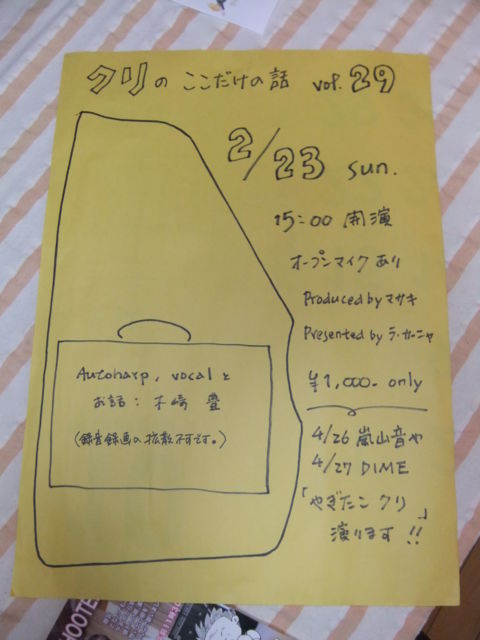 クリの ここだけの話 vol. 29
2/23 sun.
15:00 開演
オープンマイクあり
Produced by マサキ
Presented by ラ・カーニャ
¥1,000- only
Autoharp, vocal と
お話: 木崎 豊
(録音録画の拡散不可です。)
4/26 嵐山音や
4/27 DIME
「やぎたこ クリ」
演ります!!
HOOTE